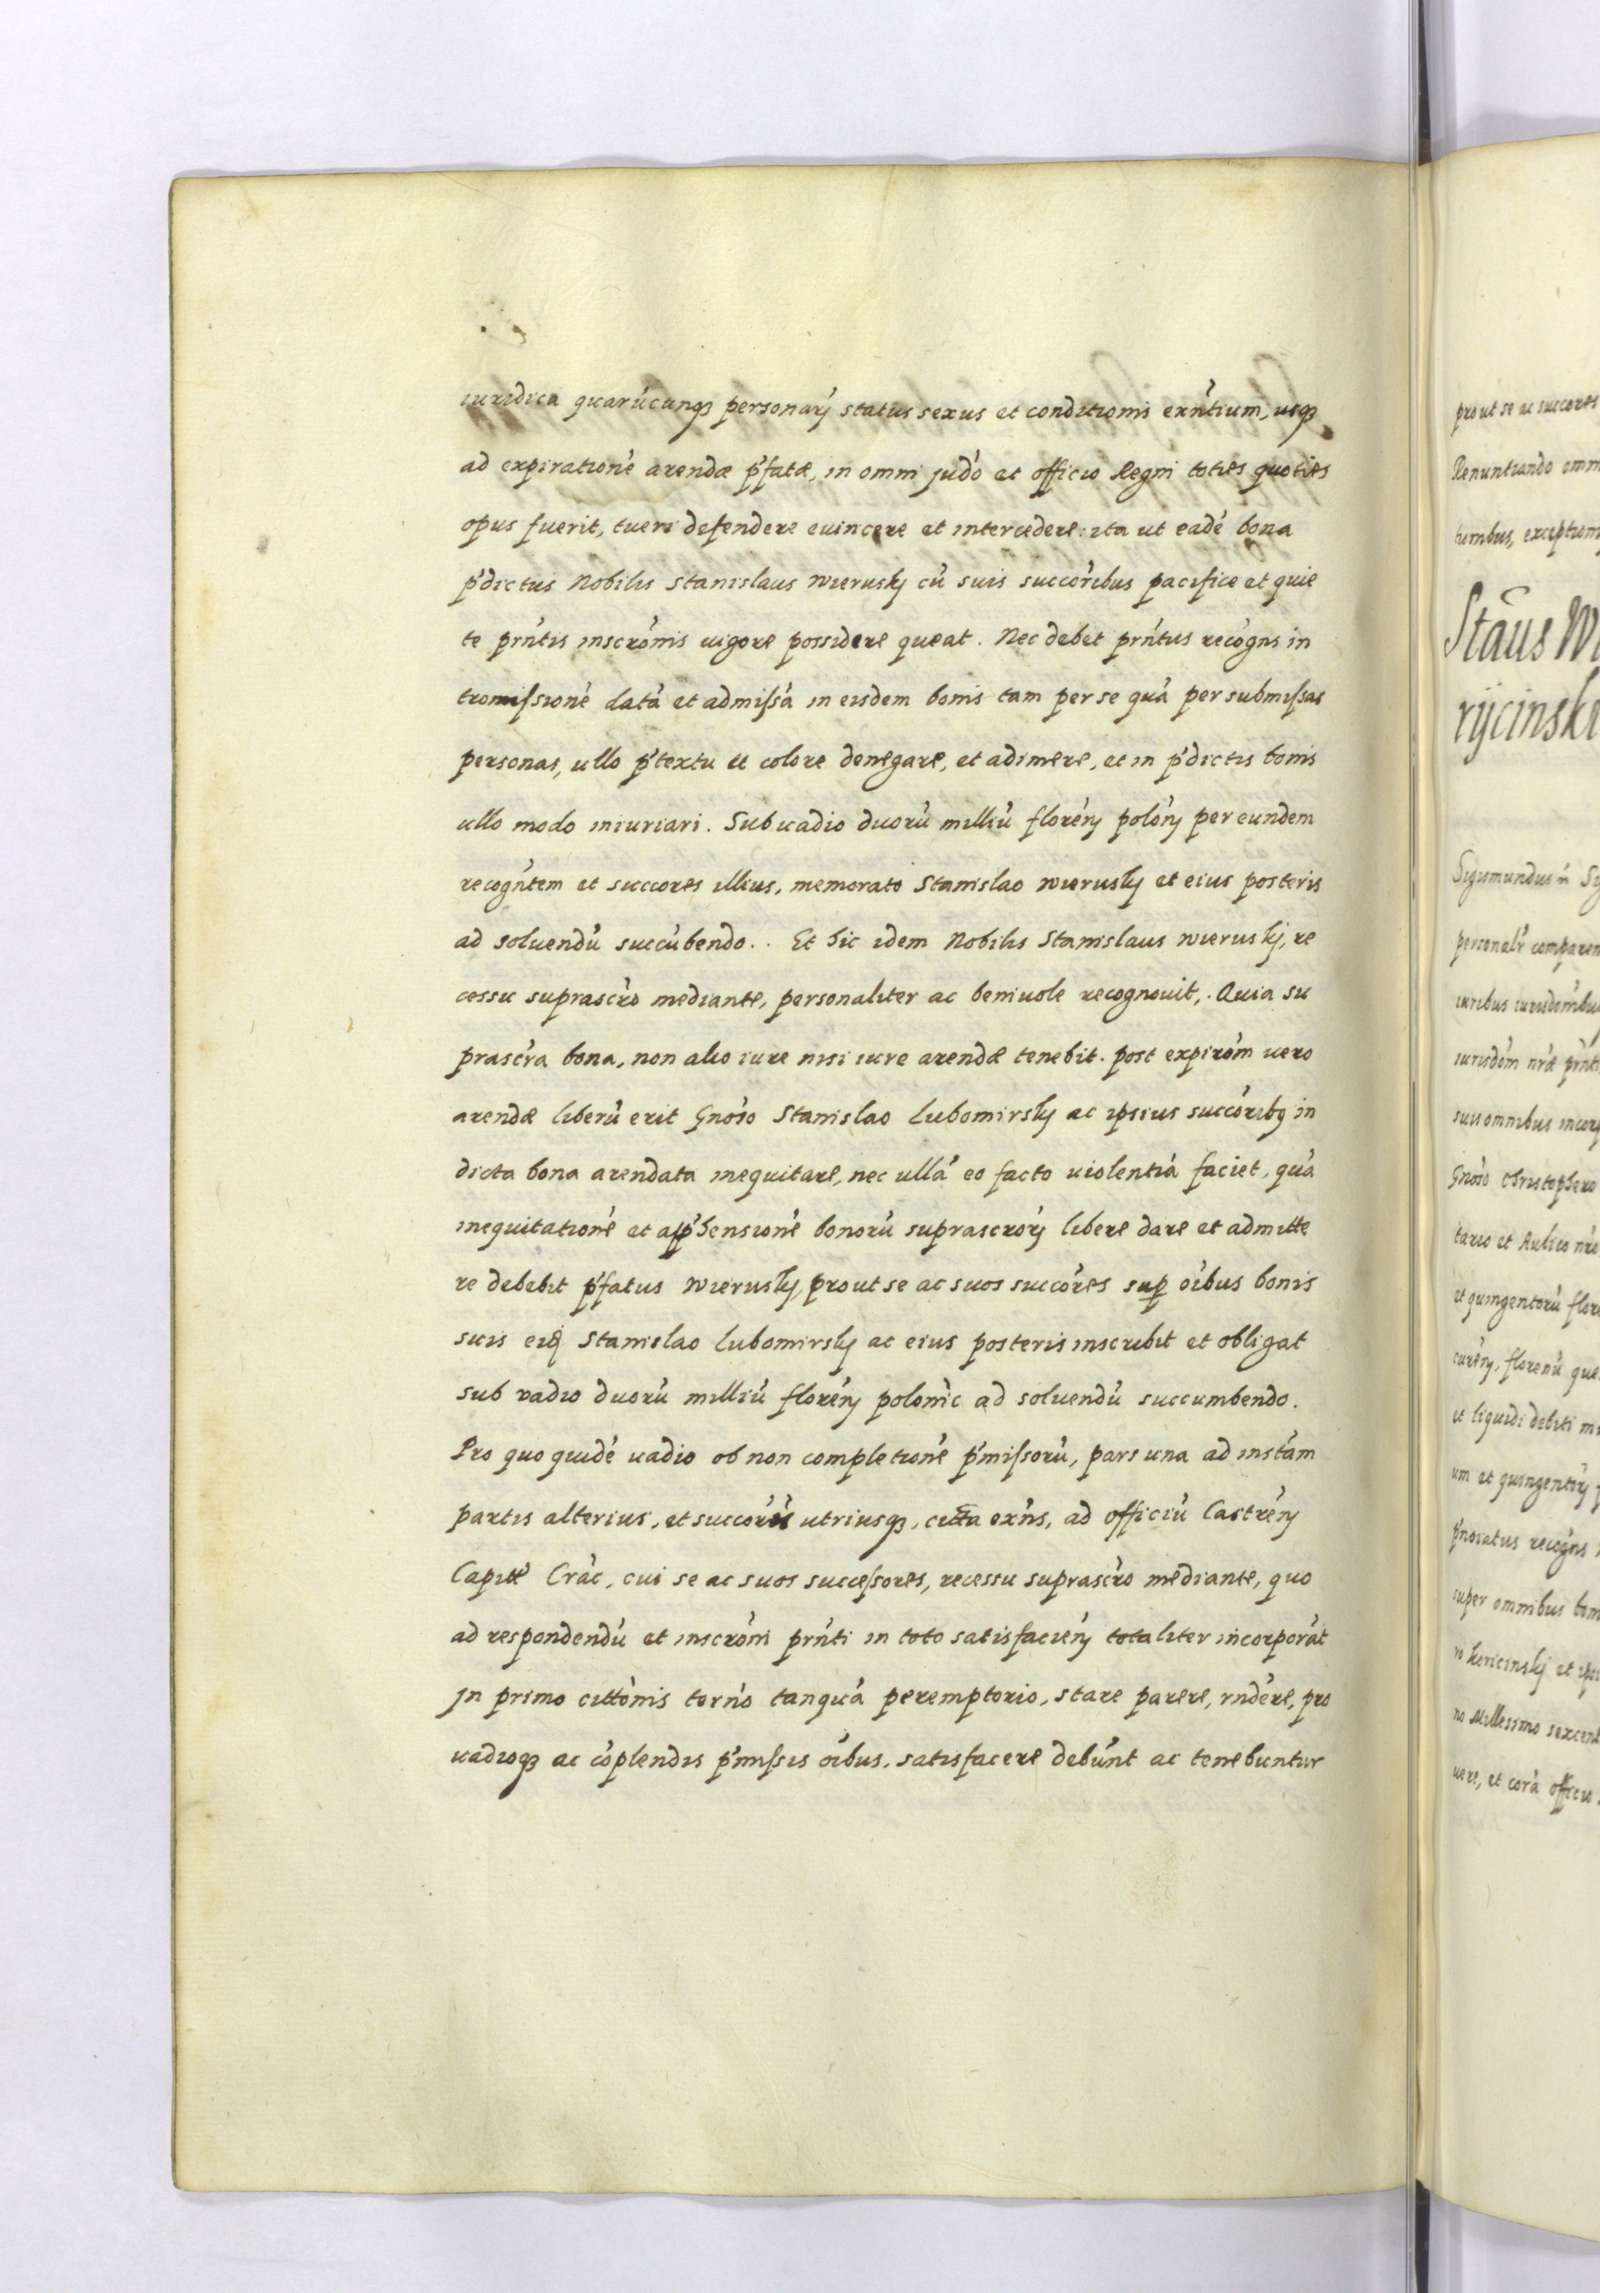 iuridica quarúcunqȝ personarų status sexus et conditionis exńtium, usqȝ
ad expirationé arendæ p̓fatæ, in omni judó et officio Regni toties quoties
opus fuerit, tueri defendere euincere et intercedere: ita ut eadé bona
p̓dictus Nobilis Stanislaus wierusky cú suis succoŕibus pacifice et quie
te prńtis inscrónis uigore possidere queat. Nec debet prńtus recógns in
tromissioné datá et admissá in eisdem bonis tam per se quá per submissas
personas, ullo p̓textu et colore denegare, et adimere, et in p̓dictis bonis
ullo modo iniuriari. Sub uadio duorú milliú floréń polóń per eundem
recogńtem et succores illius, memorato Stanislao wierusky et eius posteris
ad soluendú succúbendo. Et hic idem Nobilis Stanislaus wierusky, re
cessu suprascŕo mediante, personaliter ac beniuole recognouit, Quia su
prascŕa bona, non alio iure nisi iure arendæ tenebit. post expiróm uero
arendæ liberú erit Gnóso Stanislao Lubomirsky ac ipsius succoŕibȝ in
dicta bona arendata inequitare, nec ullá eo facto uiolentiá faciet, quá
inequitationé et app̓hensioné bonorú suprascrórų libere dare et admitte
re debebit p̓fatus wierusky, prout se ac suos succóres suꝑ oíbus bonis
suis eidȝ Stanislao Lubomirsky ac eius posteris inscribit et obligat
sub vadio duorú milliú floréń polonic ad soluendú succumbendo.
Pro quo quidé uadio ob non completioné p̓missorú, pars una ad instám
partis alterius, et succorú utriusqȝ, citta exńs, ad officiú Castréń
Capitt Crác, cui se ac suos successores, recessu suprascŕo mediante, quo
ad respondendú et inscróni prńti in toto satisfacień totaliter incorporát
jn primo cittónis termó tanquá peremptorio, stare parere, rndére, pro
uadioqȝ ac cóplendis p̓missis oíbus, satisfacere debúnt ac tenebuntur
prout se ac succores
Renuntiando omn
tumbus, exceptioni
Stãus Wi
rijcinski
Sigismundus
personalŕ comparen
iuribus iurisdónibus
iurisdóm nŕæ prńti
suis omnibus incorp
Gnóso Christophero
tario et Aulico nŕo
et quingentorú flore
, florenú que
et liquidi debiti
um et quingentorų
recógns
super omnibus bon
ro Koricinsky et
no Millesimo sexcent
uere, et corá officio